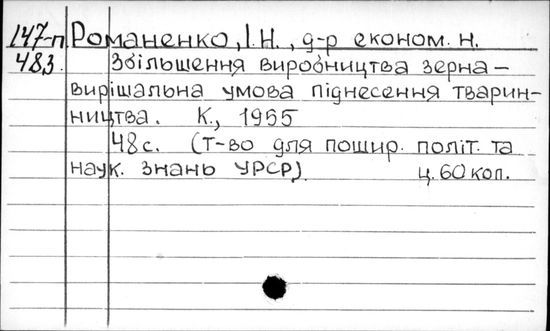 147-п Романенко, І.Н., д-р економ. н.
483. Збільшення виробництва зерна –
вирішальна умова піднесення тварин-
ництва. К., 1955
48 с. (Т-во для пошир. політ. та
наук. знань УРСР) ц. 60 коп.